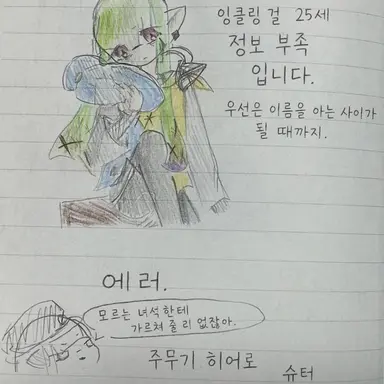 잉클링 걸 25세
정보 부족
입니다.
우선은 이름을 아는 사이가
될 때까지.
에러.
모르는 녀석한테
가르쳐 줄 리 없잖아.
주무기 히어로
슈터